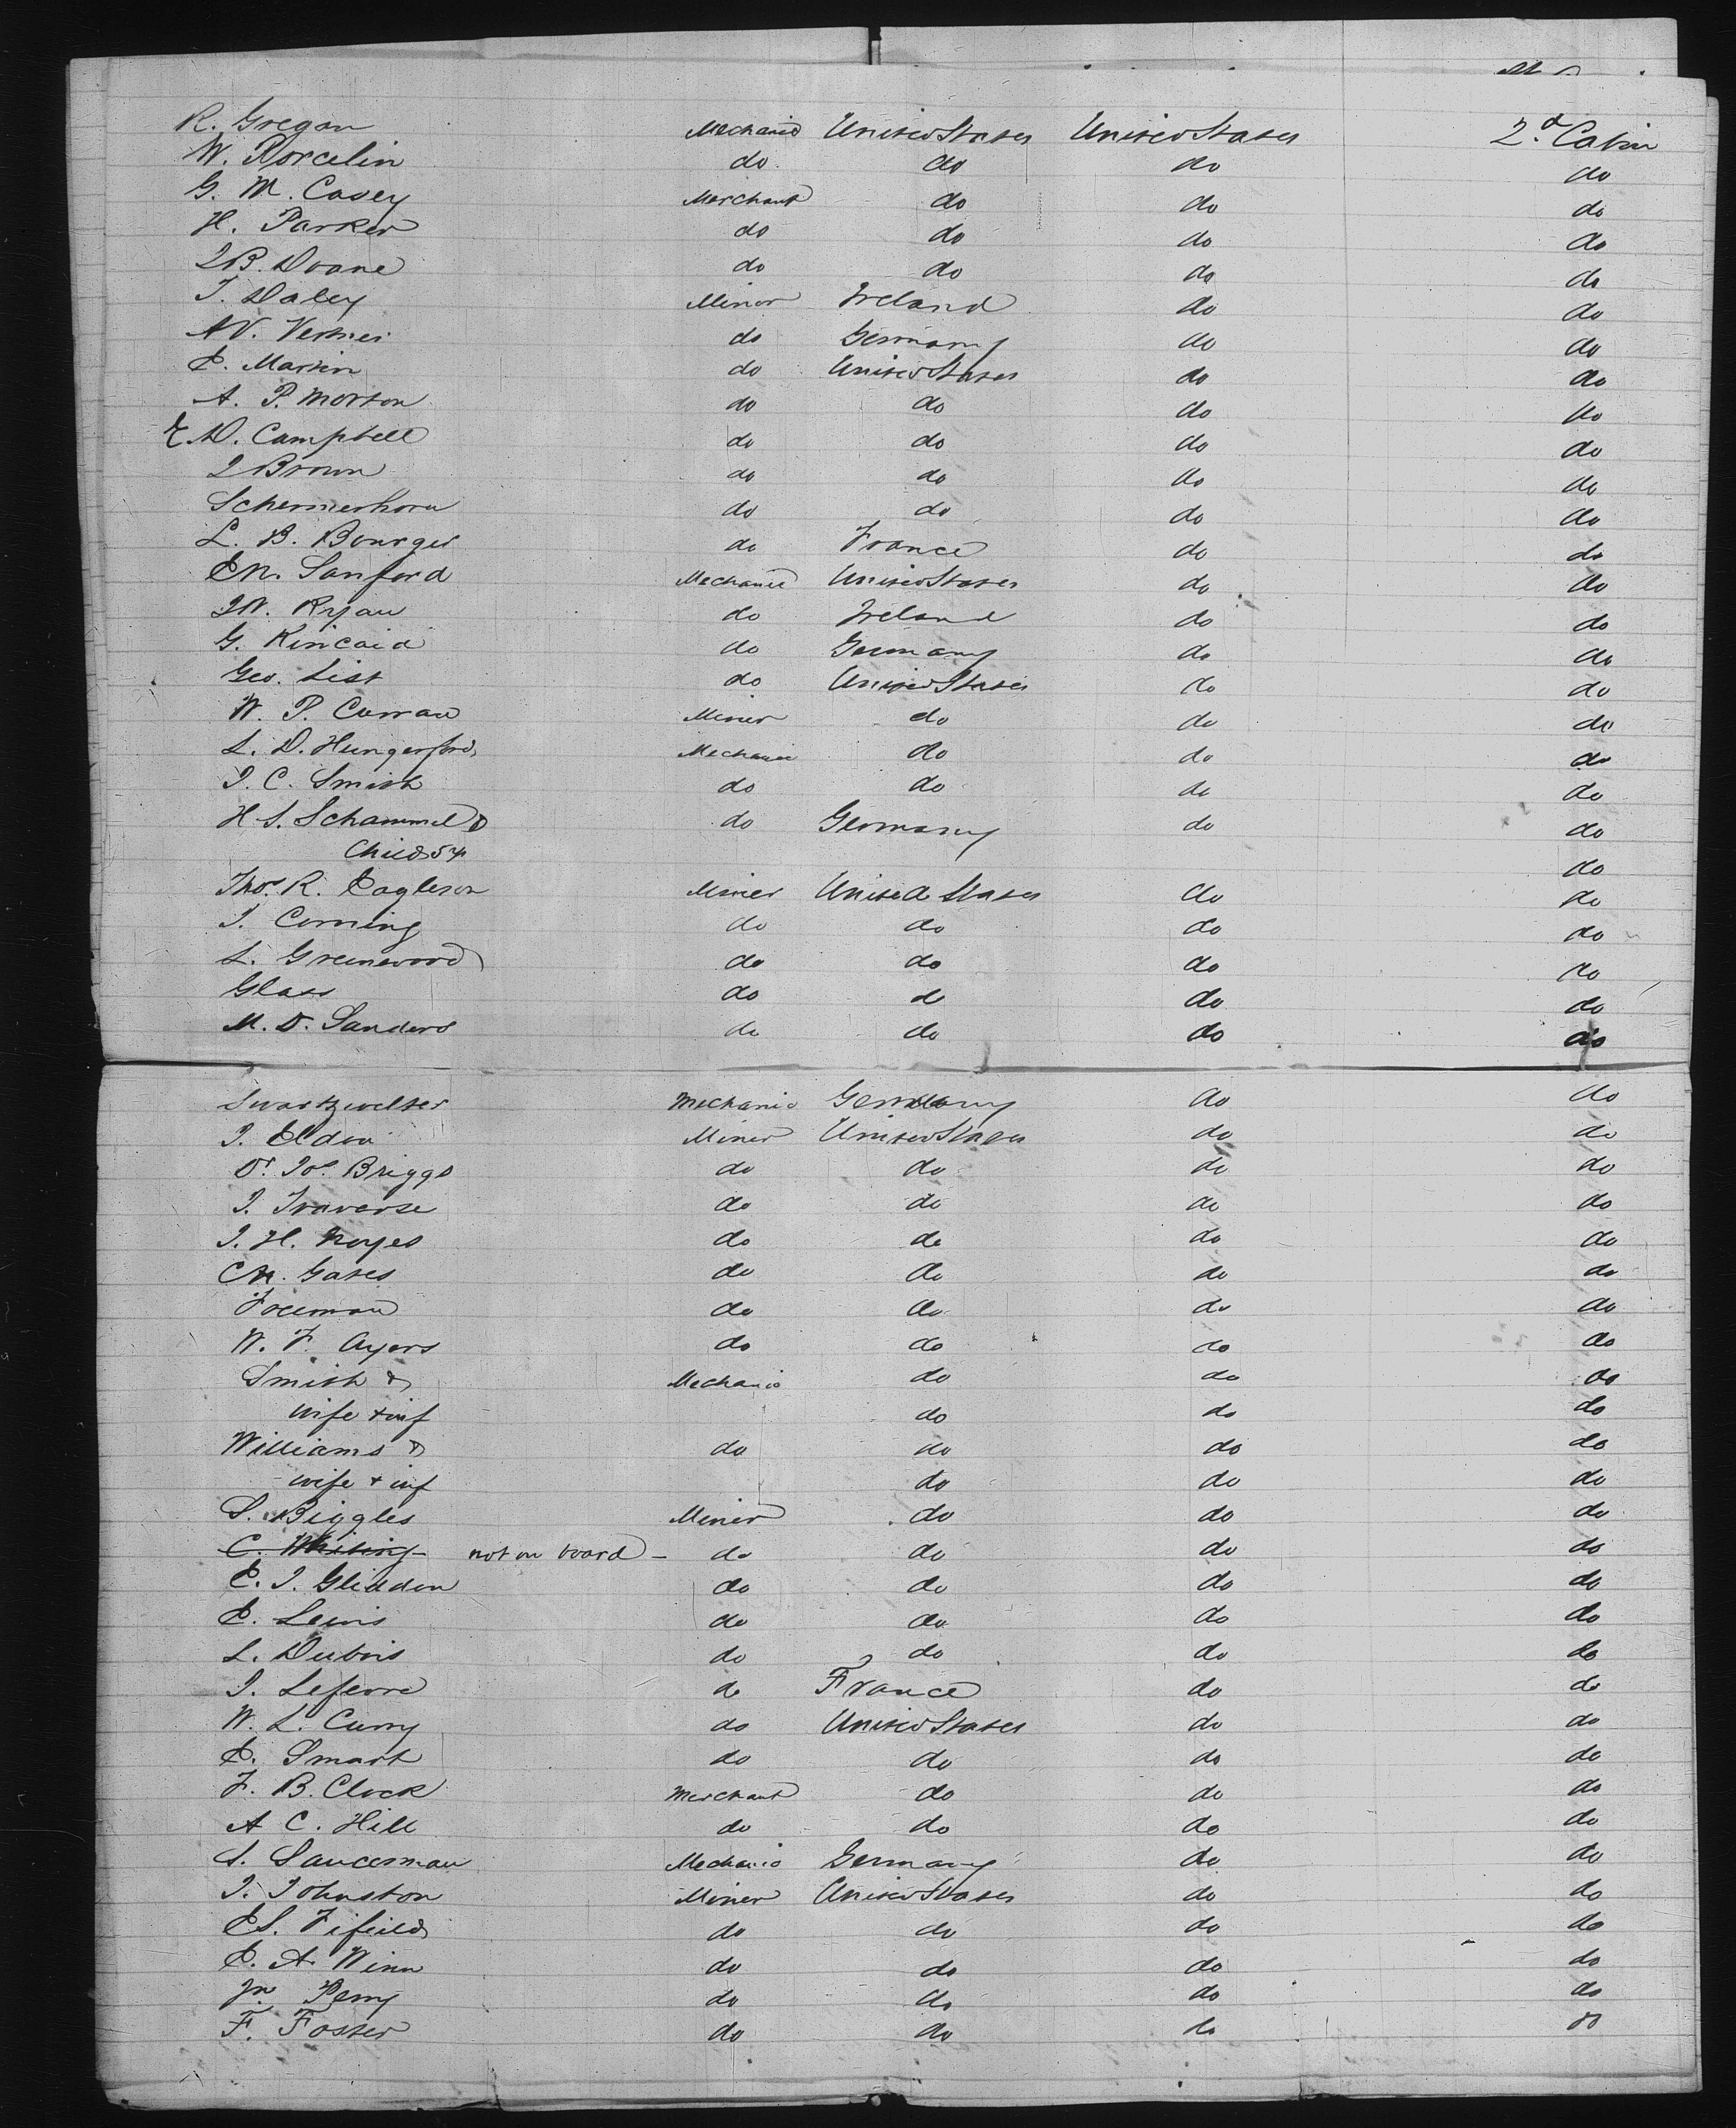 R. Gregan Mechanic United States United States 2.d Cabin
W. Porcelin do do do do
G. M. Casey Merchant do do do
H. Parker do do do do
J B. Doane do do do do
T. Daley Miner Ireland do do
do Germany do do
E. Martin do United States do do
A. P. Morton do do do do
E. D. Campbell do do do do
J Brown do do do do
Schermerhorn do do do do
L. B. Bourges do France do do
E N. Sanford Mechanic United States do do
J W. Ryan do Ireland do do
G. Kincaid do Germany do do
Geo. List do United States do do
W. P. Curran Miner do do do
L. D. Hungerford Mechanic do do do
J. C. Smith do do do do
H. S. Schammel & do Germany do do
Child 5 y do
Thos. R. Eagleson Miner United States do do
J. Corning do do do do
L. Greenwood do do do do
Glass do do do do
M. D. Sanders do do do do
Swartzwelter Mechanic Germany do do
J. Eldon Miner United States do do
Dr. Jos. Briggs do do do do
J. Traverse do do do do
J. H. Noyes do do do do
C M. Gates do do do do
Freeman do do do do
W. F. Ayers do do do do
Smith & Mechanic do do do
wife + inf do do do
Williams & do do do do
wife + inf do do do
S. Biggles Miner do do do
C. Whiting not on board do do do do
E. J. Gliddon do do do do
E. Lewis do do do do
L. Dubois do do do do
J. Lefevre do France do do
W. L. Curry do United States do do
E. Smart do do do do
F. B. Clock Merchant do do do
A C. Hill do do do do
S. Saucerman Mechanic Germany do do
J. Johnston Miner United States do do
E S. Fifield do do do do
E. A. Winn do do do do
Perry do do do do
F. Foster do do do do